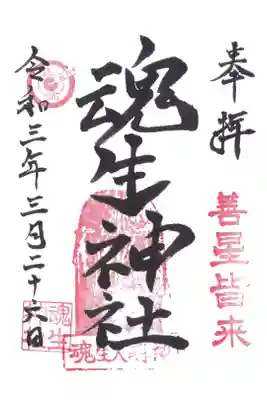 奉拝
善星皆来
魂生神社
令和三年三月二十六日
魂生